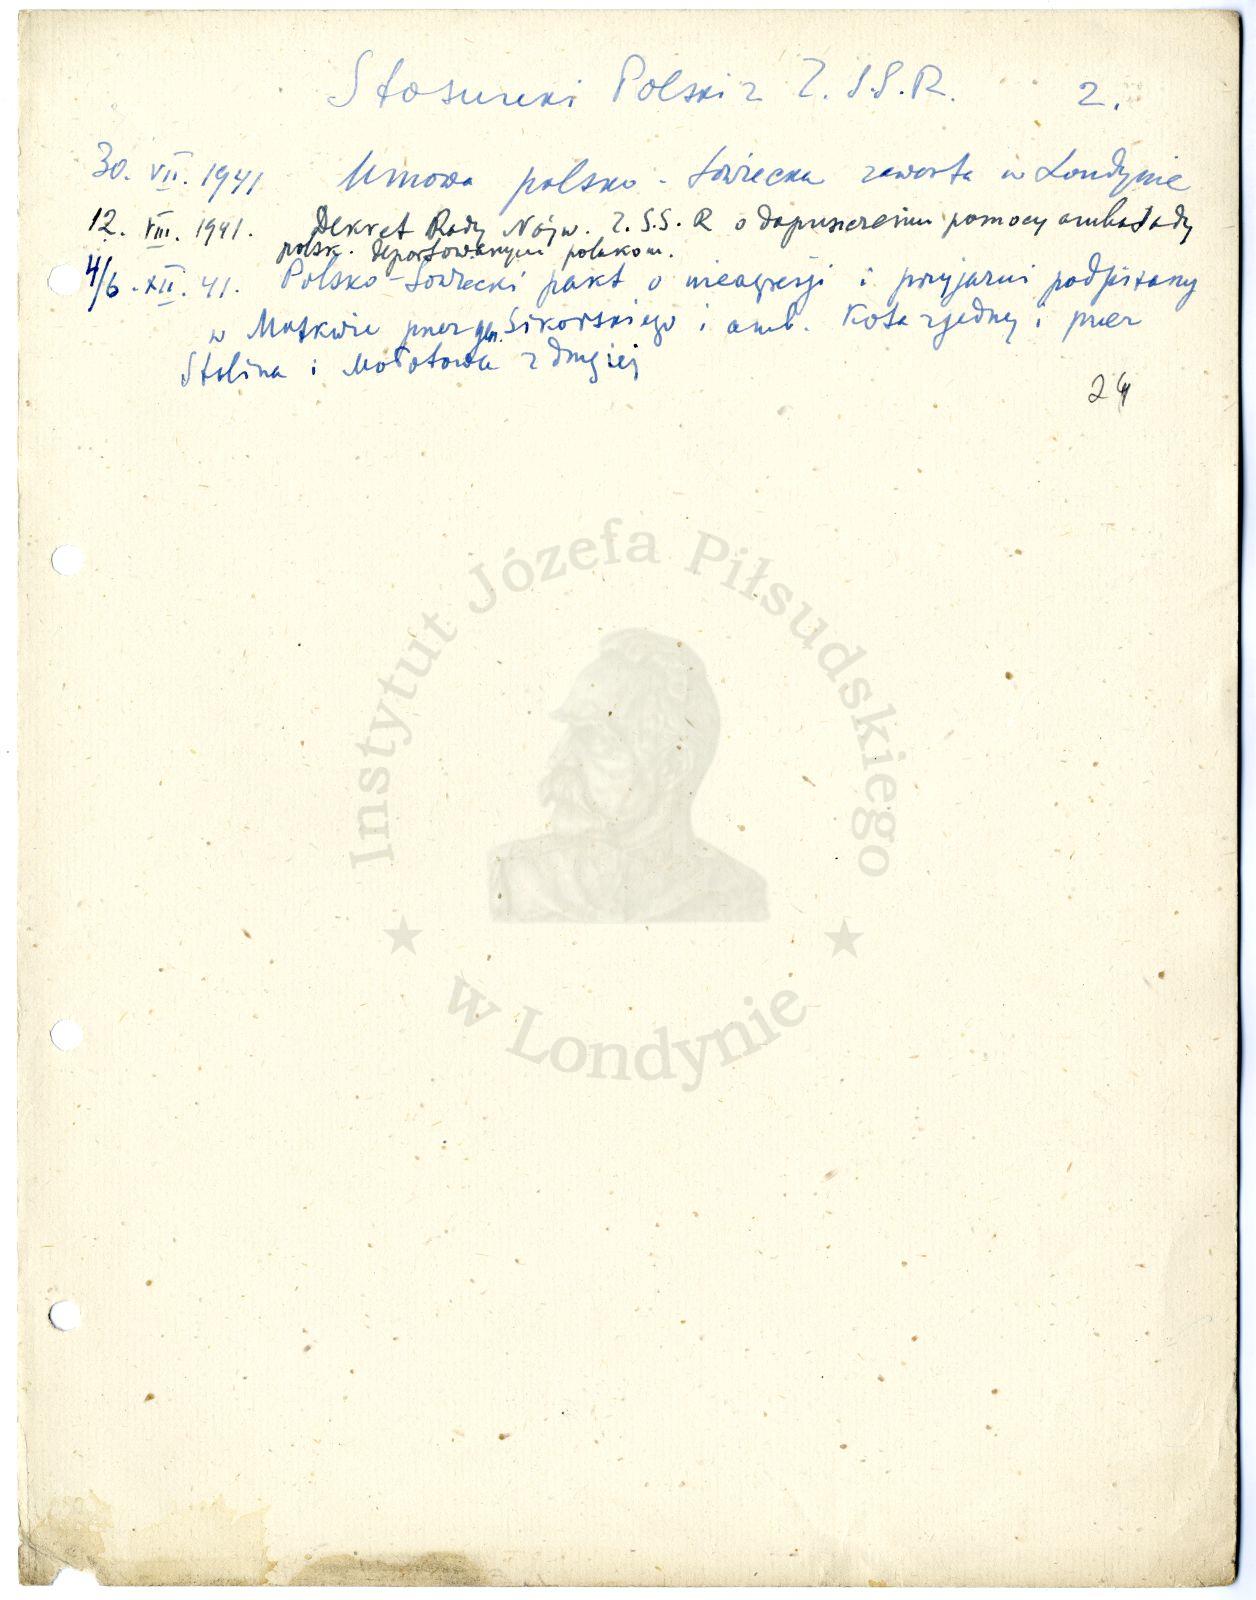 Stosunki Polski z Z.S.S.R. 2.
30. VII. 1941 Umowa polsko-sowiecka zawarta w Londynie
12. VIII. 1941. Dekret Rady Najw. Z.S.S.R o dopuszczeniu pomocy ambasady
polsk. deportowanym polakom.
4/6. XII. 41. Polsko-Sowiecki pakt o nieagresji i przyjaźni podpisany
w Moskwie przez gen. Sikorskiego i amb. Kota z jednej i przez
Stalina i Mołotowa z drugiej
24
Instytut Józefa Piłsudskiego
w Londynie